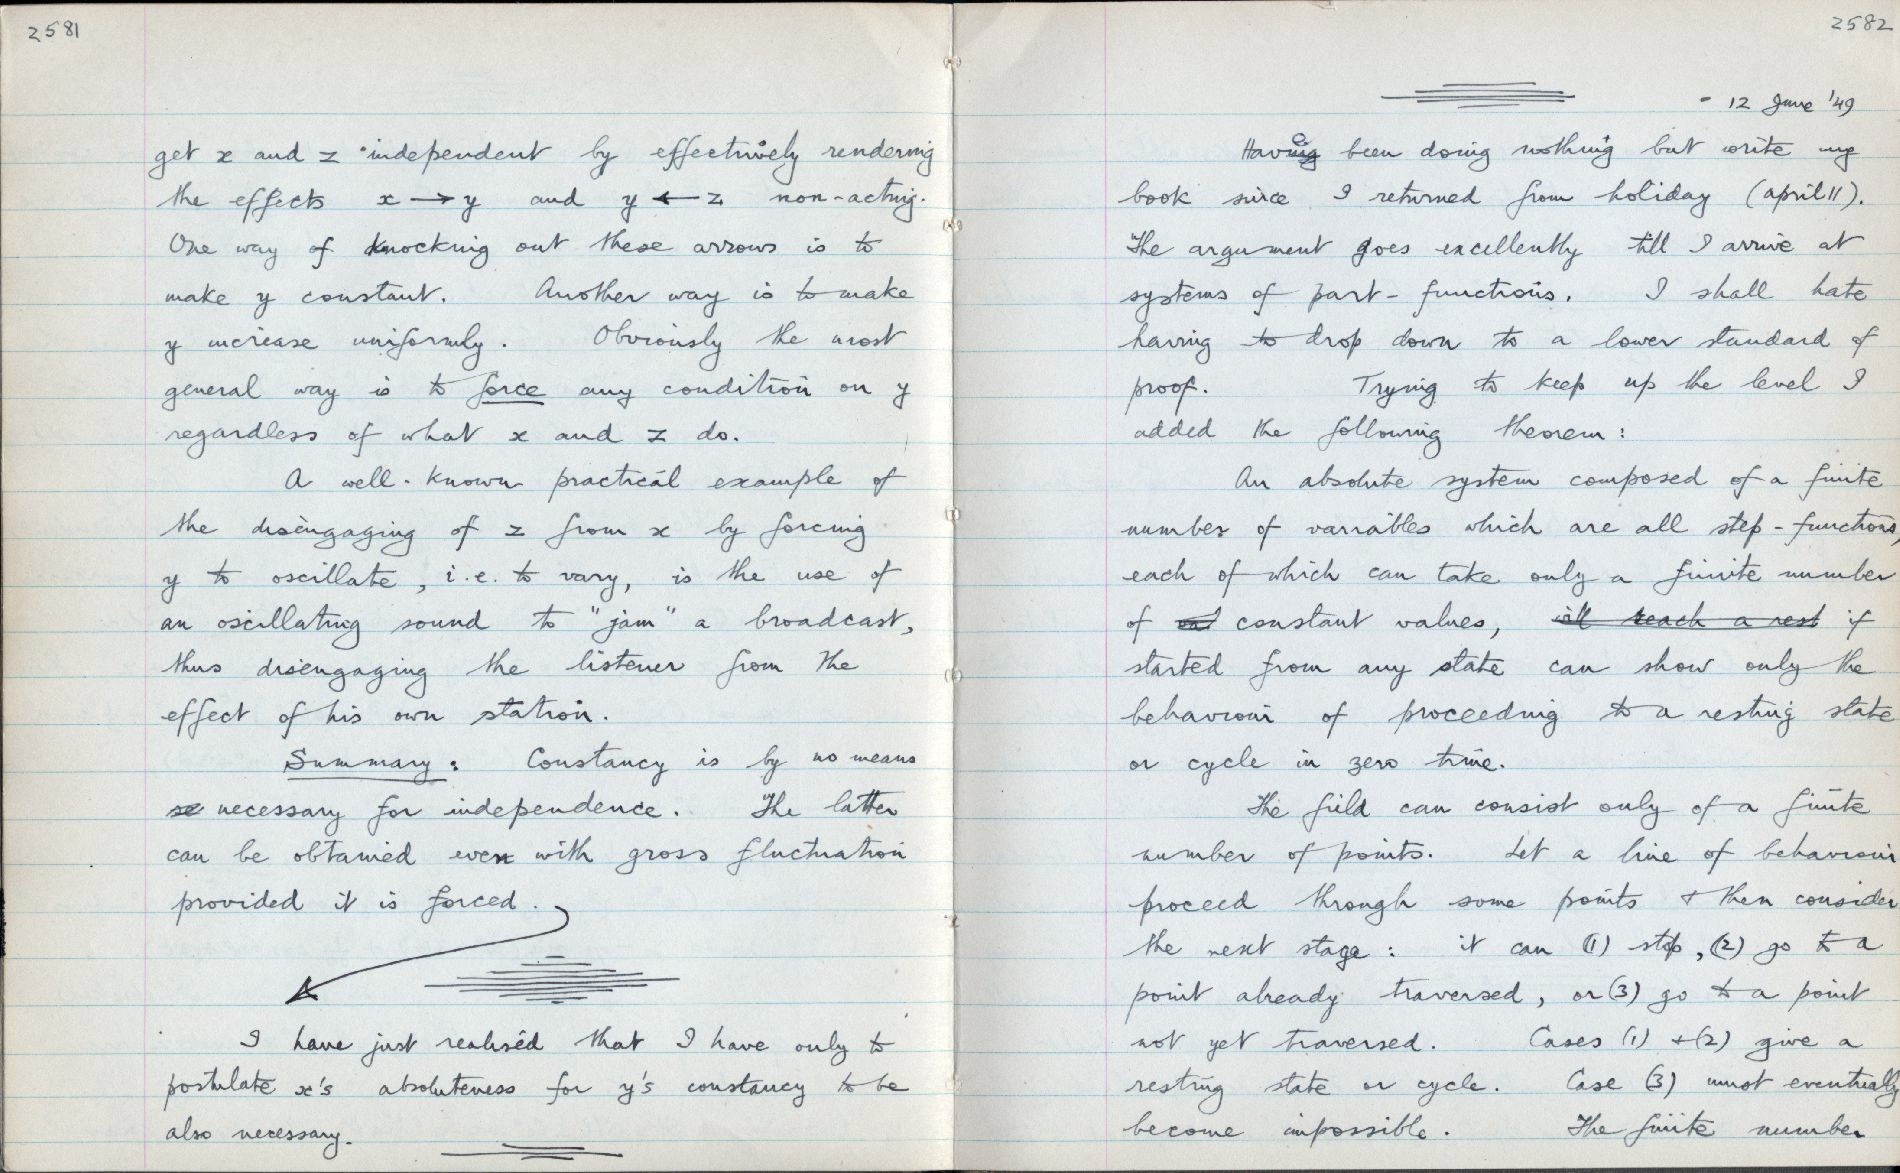 2581
get x and z independent by effectively rendering
the effects x → y and y ← z non-acting.
One way of knocking out these arrows is to
make y constant. Another way is to make
y increase uniformly. Obviously the most
general way is to force any condition on y
regardless of what x and z do.
A well-known practical example of
the disengaging of z from x by forcing
y to oscillate, i.e. to vary, is the use of
an oscillating sound to "jam" a broadcast,
thus disengaging the listener from the
effect of his own station.
Summary: Constancy is by no means
necessary for independence. The latter
can be obtained even with gross fluctuation
provided it is forced.
I have just realised that I have only to
postulate x's absoluteness for y's constancy to be
also necessary.
2582
12 June '49
Having been doing nothing but write my
book since I returned from holiday (April 11).
The argument goes excellently till I arrive at
systems of part-functions. I shall hate
having to drop down to a lower standard of
proof. Trying to keep up the level I
added the following theorem:
An absolute system composed of a finite
number of variables which are all step-functions,
each of which can take only a finite number
of constant values, will reach a rest if
started from any state can show only the
behaviour of proceeding to a resting state
or cycle in zero time.
The field can consist only of a finite
number of points. Let a line of behaviour
proceed through some points + then consider
the next stage: it can (1) stop, (2) go to a
point already traversed, or (3) go to a point
not yet traversed. Cases (1) + (2) give a
resting state or cycle. Case (3) must eventually
become impossible. The finite number